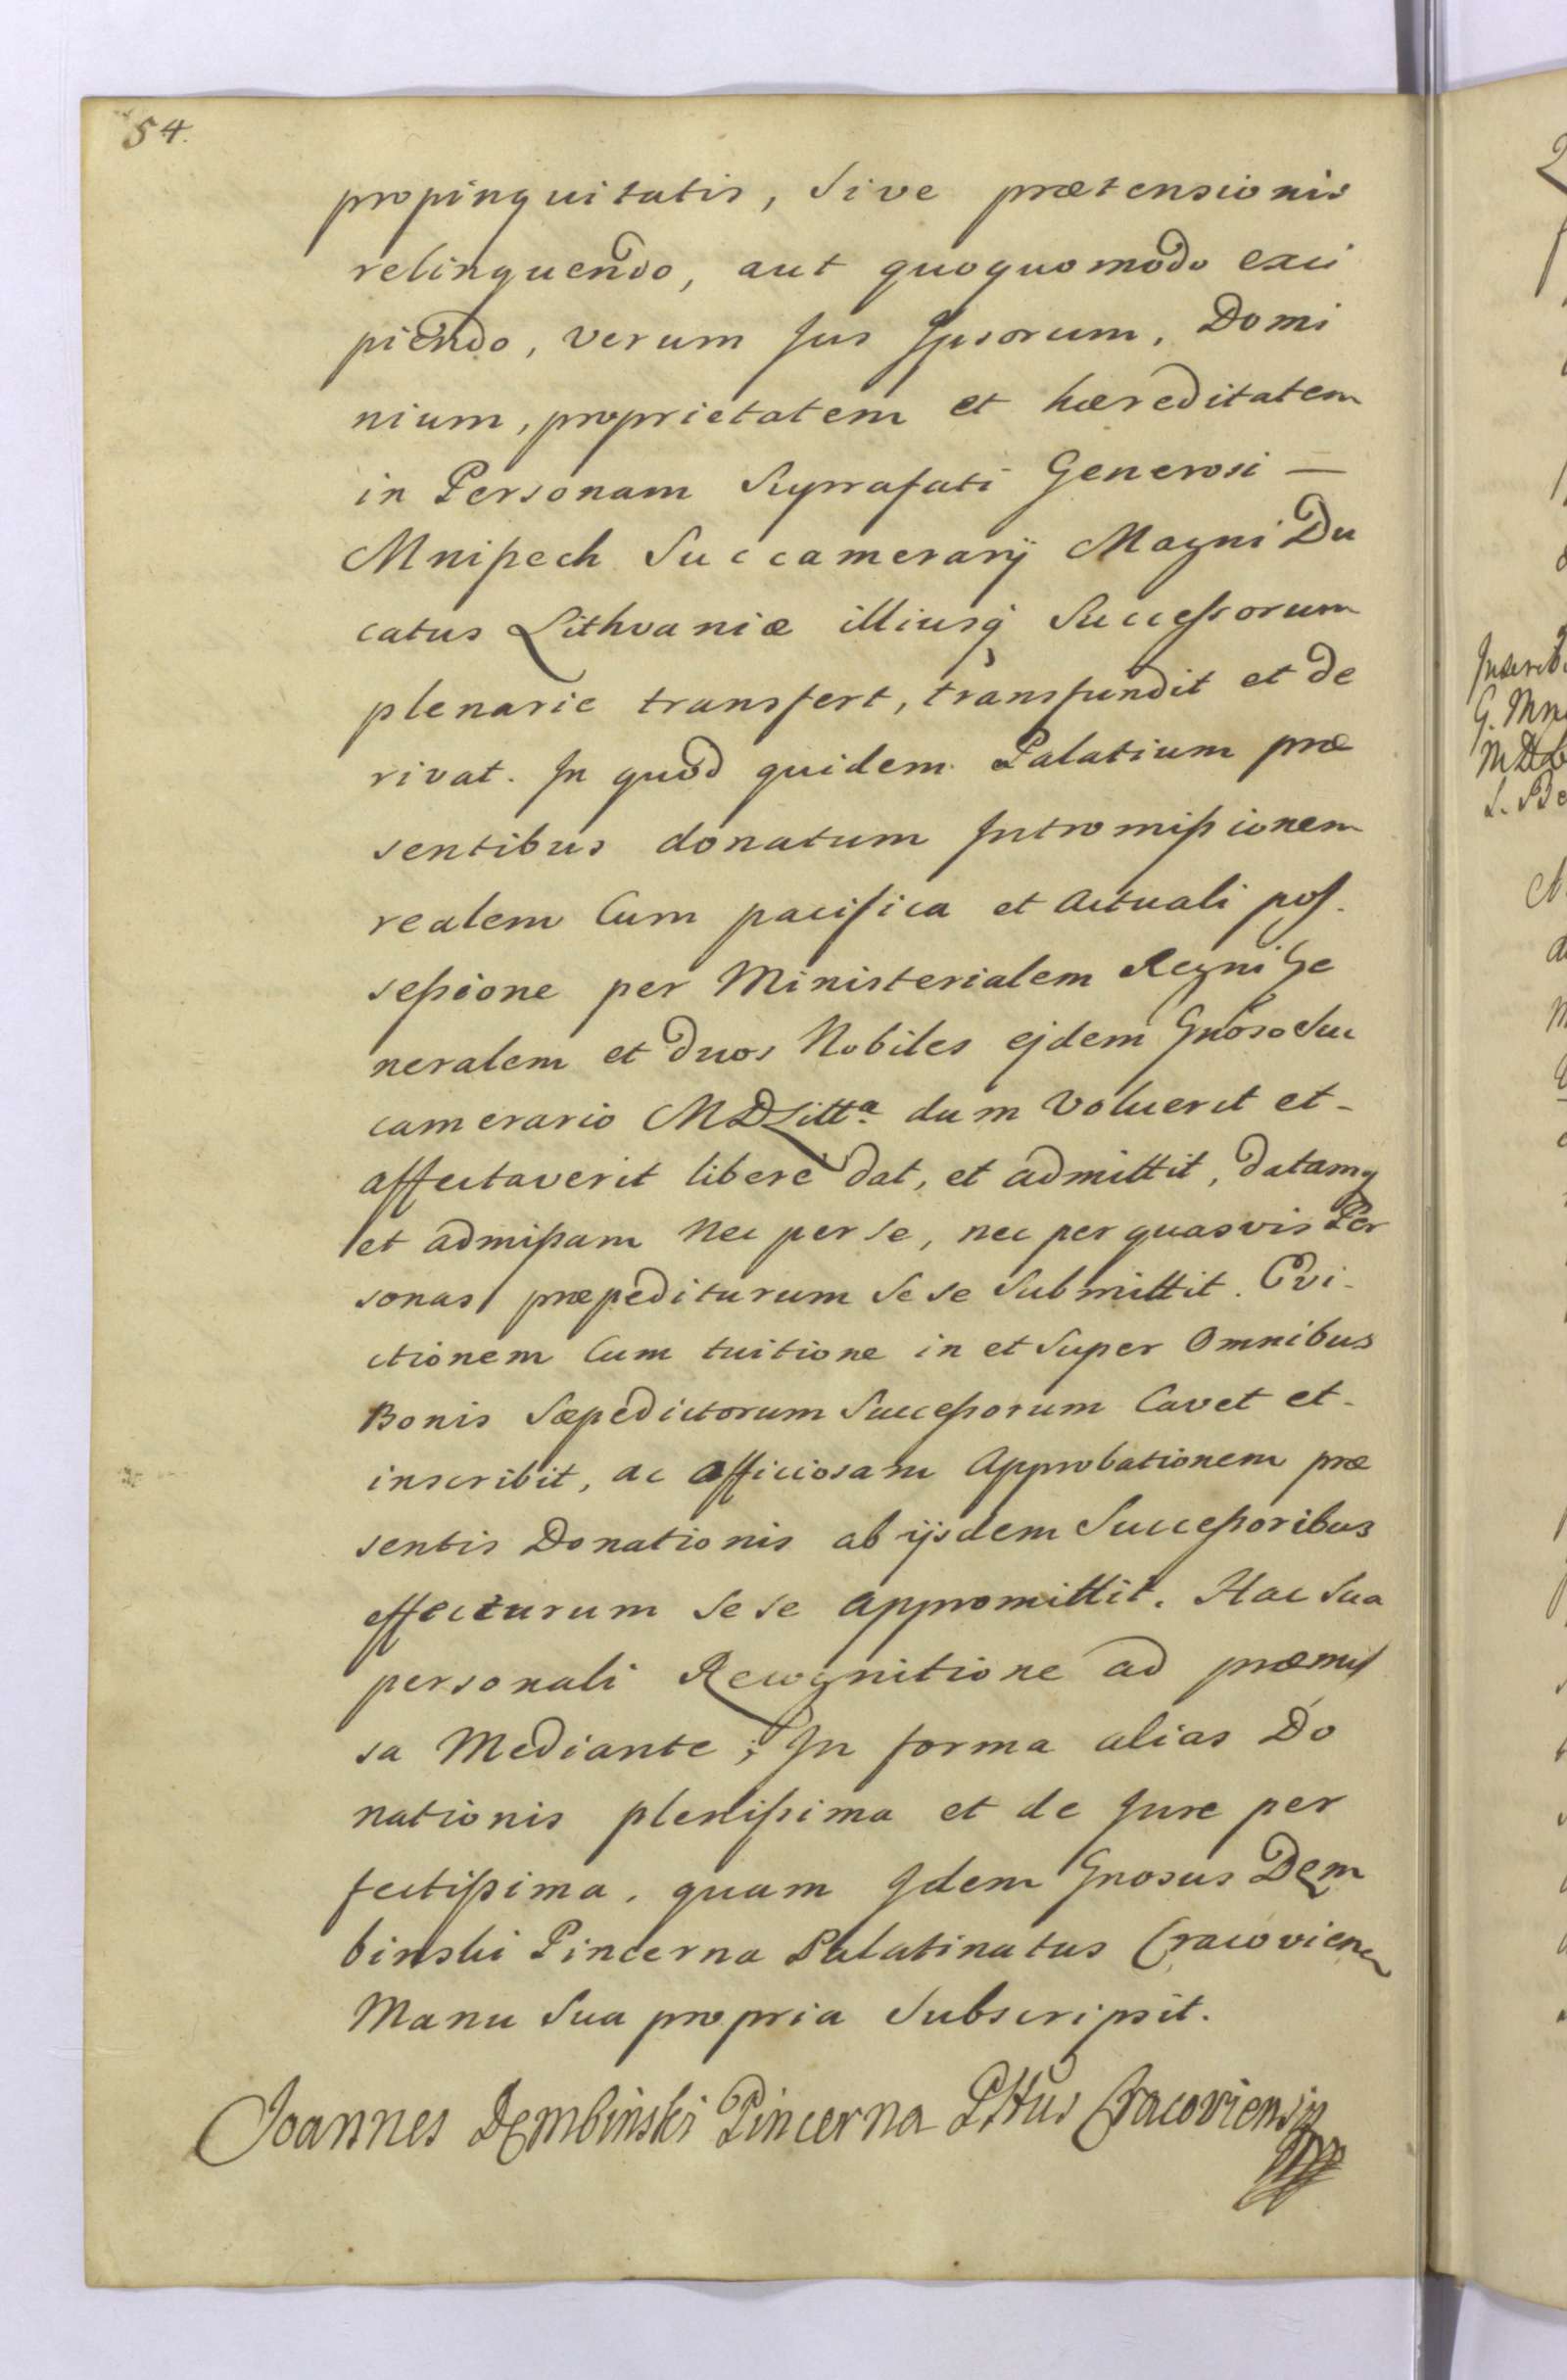 54.
propinquitatis, Sive prætensionis
relinquendo, aut quoquomodo exci
piendo, verum Jus Ipsorum, Domi
nium, proprietatem et hæreditatem
in Personam Supprafati Generosi —
Mniszech Succamerarij Magni Du
catus Lithvaniæ illiusq Successorum
plenarie transfert, transfundit et de
rivat. In quod quidem Palatium præ
sentibus donatum Intromissionem
realem Cum pacifica et Actuali pos.
sessione per Ministerialem Regni Ge
neralem et duos Nobiles ejdem Gnoso Suc
camerario MDLitta. dum Voluerit et-
affectaverit libere dat, et admittit, datamq
et admissam Nec per se, nec per quasvis Per
sonas præpediturum Se se Submittit. Evi-
ctionem Cum tuitione in et Super Omnibus
Bonis Sæpedictorum Successorum Cavet et-
inscribit, ac officiosam Approbationem præ
sentis Donationis ab ijsdem Successoribus
effecturum Se se appromittit. Hac Sua
personali Recognitione ad præmis
sa Mediante; In forma alias Do
nationis plenissima et de Jure per
fectissima, quam Idem Gnosus Dem
binski Pincerna Palatinatus Cracovien
Manu Sua propria Subscripsit.
Joannes Dembinski Pincerna Pttus Cracoviensis
Inscrib
G. Mn